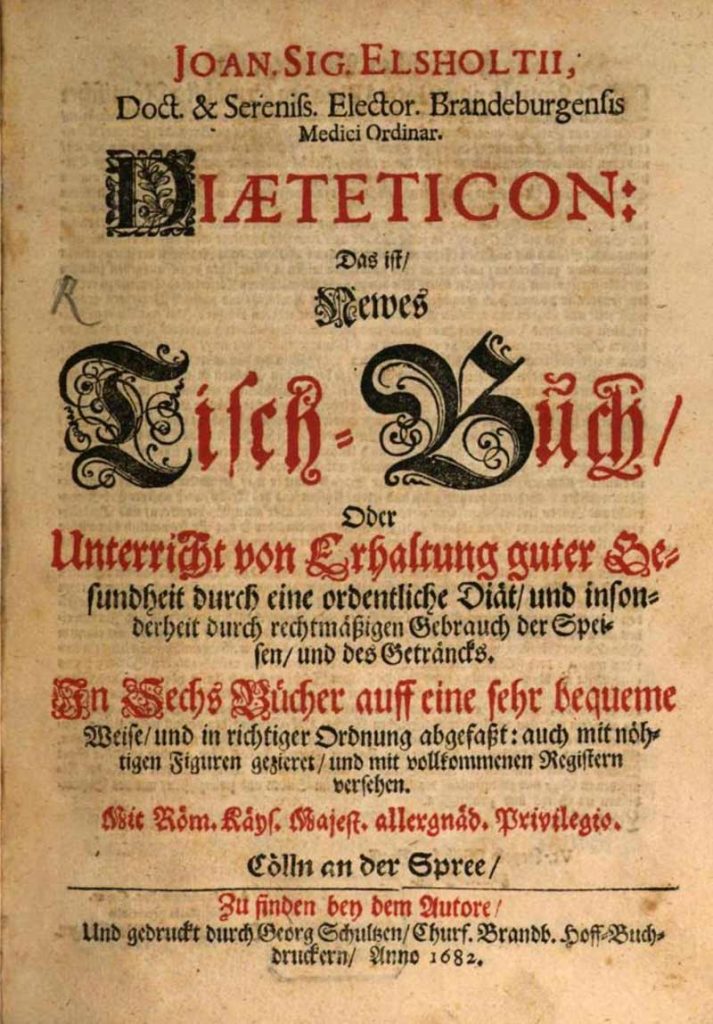 JOAN. SIG. ELSHOLTII,
Doct. & Sereniss. Elector. Brandeburgensis
Medici Ordinar.
DIÆTETICON:
Das ist/
Newes
R
Tisch-Bũch/
Oder
Unterricht von Erhaltung guter Ge-
sundheit durch eine ordentliche Diät/ und inson-
derheit durch rechtmäßigen Gebrauch der Spei-
sen/ und des Getråncks.
In Sechs Bücher auff eine sehr bequeme
Weise/ und in richtiger Ordnung abgefaßt: auch mit nöh-
tigen Figuren gezieret/ und mit vollkommenen Registern
versehen.
Mit Röm. Käys. Majest. allergnäd. Privilegio.
Cölln an der Spree/
Zu finden bey dem Autore/
Und gedruckt durch Georg Schultzen/ Churf. Brandb. Hoff-Buch-
druckern/ Anno 1682.